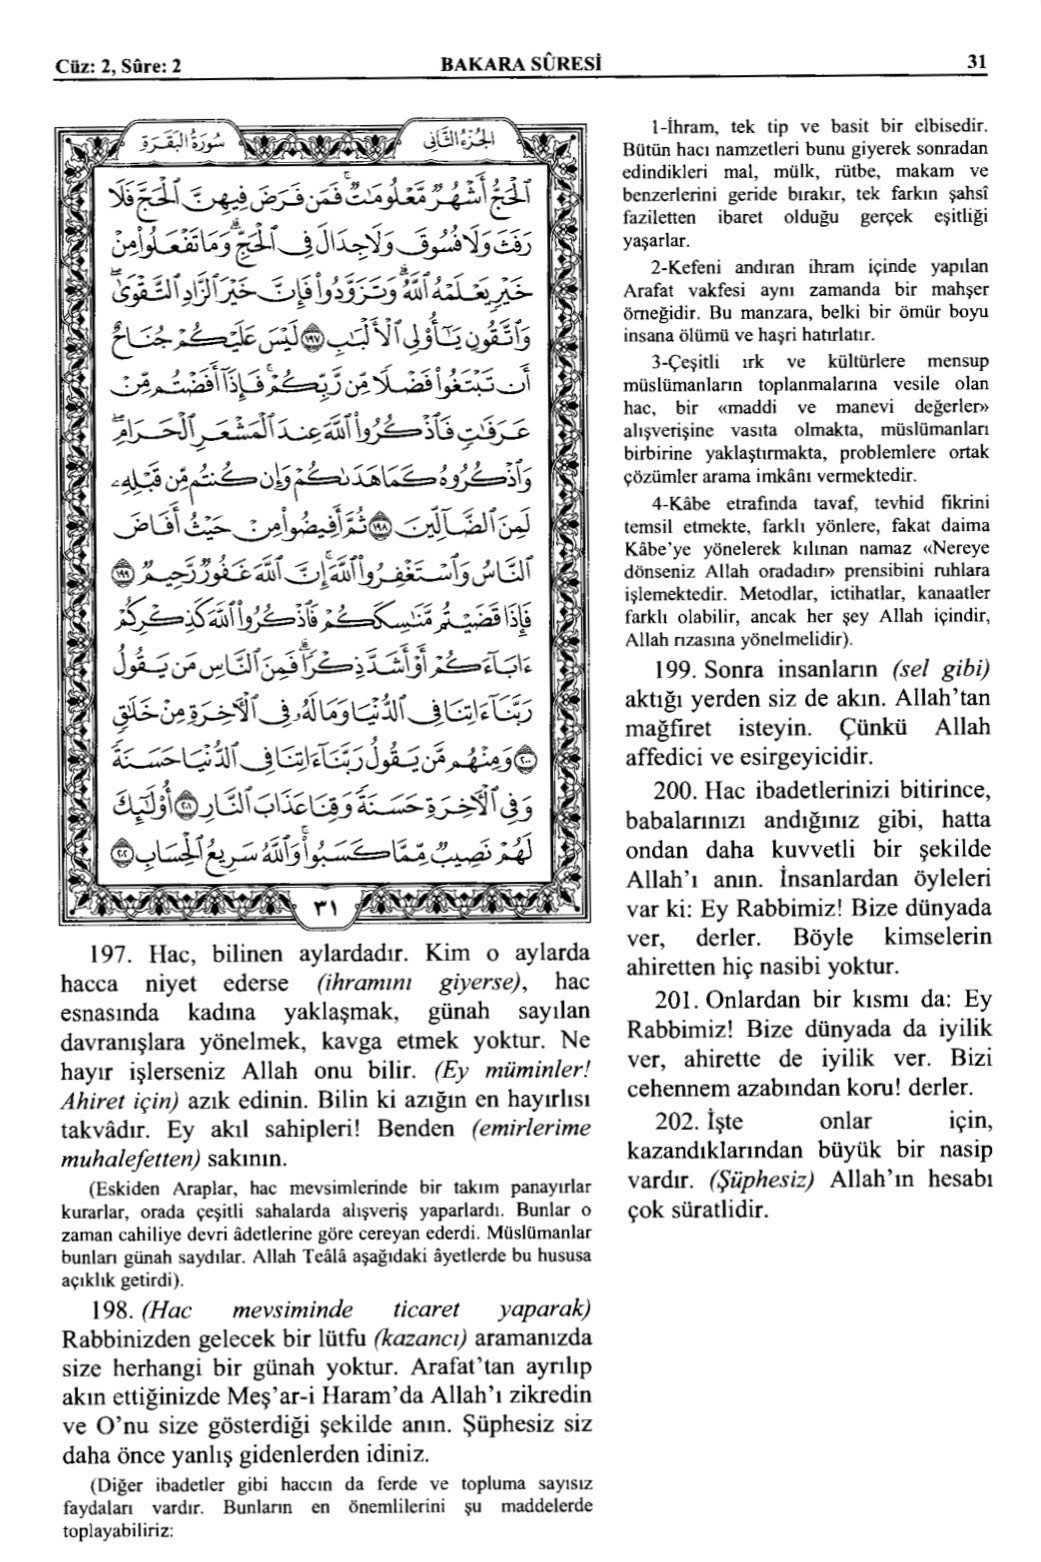 Cüz: 2, Sûre: 2
BAKARA SÛRESİ
31
سُورَةُ الْبَقَرَةِ
الجُزْءُ الثَّانِي
الْحَجُّ أَشْهُرٌ مَّعْلُومَاتٌ ۚ فَمَن فَرَضَ فِيهِنَّ الْحَجَّ فَلَا
رَفَثَ وَلَا فُسُوقَ وَلَا جِدَالَ فِي الْحَجِّ ۗ وَمَا تَفْعَلُوا مِنْ
خَيْرٍ يَعْلَمْهُ اللَّهُ ۗ وَتَزَوَّدُوا فَإِنَّ خَيْرَ الزَّادِ التَّقْوَىٰ ۚ
وَاتَّقُونِ يَا أُولِي الْأَلْبَابِ ﴿١٩٧﴾ لَيْسَ عَلَيْكُمْ جُنَاحٌ
أَن تَبْتَغُوا فَضْلًا مِّن رَّبِّكُمْ ۚ فَإِذَا أَفَضْتُم مِّنْ
عَرَفَاتٍ فَاذْكُرُوا اللَّهَ عِندَ الْمَشْعَرِ الْحَرَامِ ۖ
وَاذْكُرُوهُ كَمَا هَدَاكُمْ وَإِن كُنتُم مِّن قَبْلِهِ
لَمِنَ الضَّالِّينَ ﴿١٩٨﴾ ثُمَّ أَفِيضُوا مِنْ حَيْثُ أَفَاضَ
النَّاسُ وَاسْتَغْفِرُوا اللَّهَ ۚ إِنَّ اللَّهَ غَفُورٌ رَّحِيمٌ ﴿١٩٩﴾
فَإِذَا قَضَيْتُم مَّنَاسِكَكُمْ فَاذْكُرُوا اللَّهَ كَذِكْرِكُمْ
آبَاءَكُمْ أَوْ أَشَدَّ ذِكْرًا ۗ فَمِنَ النَّاسِ مَن يَقُولُ
رَبَّنَا آتِنَا فِي الدُّنْيَا وَمَا لَهُ فِي الْآخِرَةِ مِنْ خَلَاقٍ
﴿٢٠٠﴾ وَمِنْهُم مَّن يَقُولُ رَبَّنَا آتِنَا فِي الدُّنْيَا حَسَنَةً
وَفِي الْآخِرَةِ حَسَنَةً وَقِنَا عَذَابَ النَّارِ ﴿٢٠١﴾ أُولَٰئِكَ
لَهُمْ نَصِيبٌ مِّمَّا كَسَبُوا ۚ وَاللَّهُ سَرِيعُ الْحِسَابِ ﴿٢٠٢﴾
٣١
197. Hac, bilinen aylardadır. Kim o aylarda
hacca niyet ederse (ihramını giyerse), hac
esnasında kadına yaklaşmak, günah sayılan
davranışlara yönelmek, kavga etmek yoktur. Ne
hayır işlerseniz Allah onu bilir. (Ey müminler!
Ahiret için) azık edinin. Bilin ki azığın en hayırlısı
takvâdır. Ey akıl sahipleri! Benden (emirlerime
muhalefetten) sakının.
(Eskiden Araplar, hac mevsimlerinde bir takım panayırlar
kurarlar, orada çeşitli sahalarda alışveriş yaparlardı. Bunlar o
zaman cahiliye devri âdetlerine göre cereyan ederdi. Müslümanlar
bunları günah saydılar. Allah Teâlâ aşağıdaki âyetlerde bu hususa
açıklık getirdi).
198. (Hac mevsiminde ticaret yaparak)
Rabbinizden gelecek bir lütfu (kazancı) aramanızda
size herhangi bir günah yoktur. Arafat’tan ayrılıp
akın ettiğinizde Meş’ar-i Haram’da Allah’ı zikredin
ve O’nu size gösterdiği şekilde anın. Şüphesiz siz
daha önce yanlış gidenlerden idiniz.
(Diğer ibadetler gibi haccın da ferde ve topluma sayısız
faydaları vardır. Bunların en önemlilerini şu maddelerde
toplayabiliriz:
1-İhram, tek tip ve basit bir elbisedir.
Bütün hacı namzetleri bunu giyerek sonradan
edindikleri mal, mülk, rütbe, makam ve
benzerlerini geride bırakır, tek farkın şahsî
faziletten ibaret olduğu gerçek eşitliği
yaşarlar.
2-Kefeni andıran ihram içinde yapılan
Arafat vakfesi aynı zamanda bir mahşer
örneğidir. Bu manzara, belki bir ömür boyu
insana ölümü ve haşri hatırlatır.
3-Çeşitli ırk ve kültürlere mensup
müslümanların toplanmalarına vesile olan
hac, bir «maddi ve manevi değerler»
alışverişine vasıta olmakta, müslümanları
birbirine yaklaştırmakta, problemlere ortak
çözümler arama imkânı vermektedir.
4-Kâbe etrafında tavaf, tevhid fikrini
temsil etmekte, farklı yönlere, fakat daima
Kâbe’ye yönelerek kılınan namaz «Nereye
dönseniz Allah oradadır» prensibini ruhlara
işlemektedir. Metodlar, ictihatlar, kanaatler
farklı olabilir, ancak her şey Allah içindir,
Allah rızasına yönelmelidir).
199. Sonra insanların (sel gibi)
aktığı yerden siz de akın. Allah’tan
mağfiret isteyin. Çünkü Allah
affedici ve esirgeyicidir.
200. Hac ibadetlerinizi bitirince,
babalarınızı andığınız gibi, hatta
ondan daha kuvvetli bir şekilde
Allah’ı anın. İnsanlardan öyleleri
var ki: Ey Rabbimiz! Bize dünyada
ver, derler. Böyle kimselerin
ahiretten hiç nasibi yoktur.
201. Onlardan bir kısmı da: Ey
Rabbimiz! Bize dünyada da iyilik
ver, ahirette de iyilik ver. Bizi
cehennem azabından koru! derler.
202. İşte onlar için,
kazandıklarından büyük bir nasip
vardır. (Şüphesiz) Allah’ın hesabı
çok süratlidir.